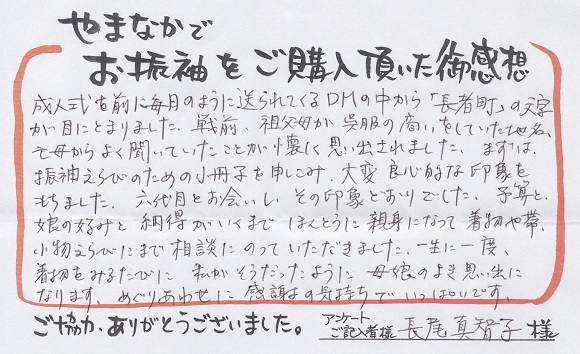 やまなかで
お振袖をご購入頂いた御感想
成人式を前に毎月のように送られてくるDMの中から「長者町」の文字
が目にとまりました。戦前、祖父母が呉服の商いをしていた地名、
亡母からよく聞いていたことが懐しく思い出されました。まずは、
振袖えらびのための小冊子を申しこみ、大変良心的な印象を
もちました。六代目とお会いし、その印象どおりでした。予算と、
娘の好みと納得がいくまでほんとうに親身になって着物や帯、
小物えらびにまで相談にのっていただきました。一生に一度、
着物をみるたびに私がそうだったように母娘のよき思い出に
なります。めぐりあわせに感謝の気持ちでいっぱいです。
ご協力、ありがとうございました。
アンケート
ご記入者様 長尾真智子 様